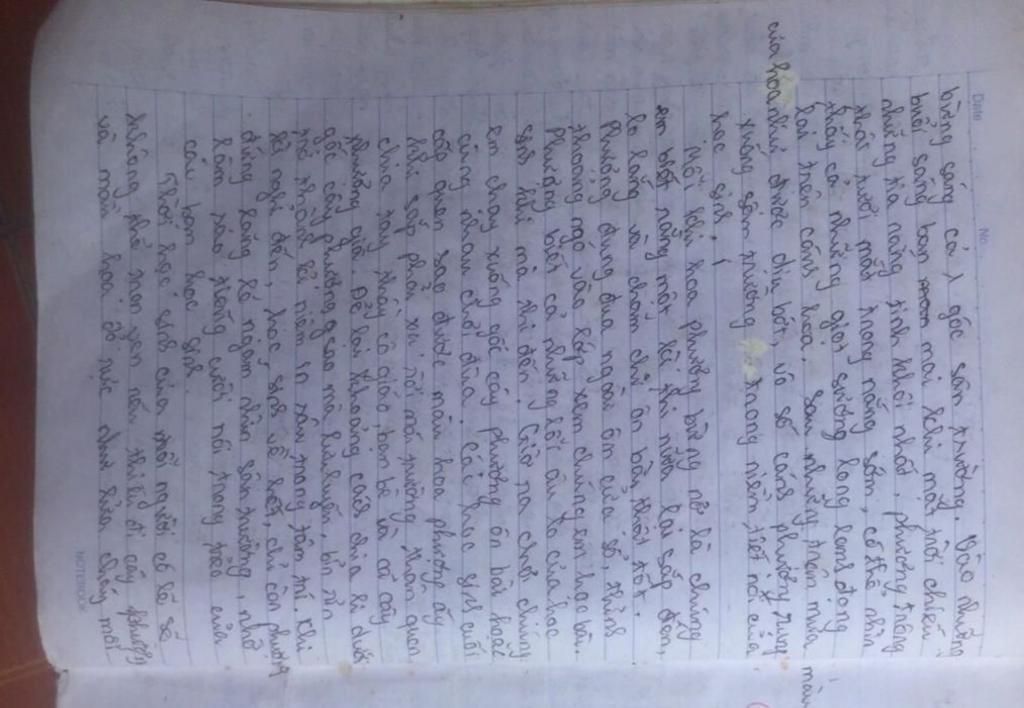 Date
No.
bừng sáng cả 1 góc sân trường. Vào những
buổi sáng ban mai khi mặt trời chiếu
những tia nắng tinh khôi nhất, phượng trông
thật tươi mát trong nắng sớm, có thể nhìn
thấy cả những giọt sương long lanh đọng
lại trên cánh hoa. Sau những trận mưa màu
của hoa như được dịu bớt, vô số cánh phượng rụng
xuống sân trường mang niềm tiết nối của
học sinh.
Mỗi khi hoa phượng bừng nở là chúng
em biết rằng một kì thi nữa lại sắp đến,
lo lắng và chăm chỉ ôn bài thật tốt.
Phượng đung đưa ngoài ô cửa sổ, thỉnh
thoảng ngó vào lớp xem chúng em học bài.
Phượng biết cả những lỗi âu lo của học
sinh khi mà thi đến. Giờ ra chơi chúng
em chạy xuống gốc cây phượng ôn bài hoặc
cùng nhau chơi đùa. Các học sinh cuối
cấp quên sao được màu hoa phượng ấy
khi sắp phải xa rời mái trường thân quen
chia tay thầy cô giáo, bạn bè và cả cây
phượng già. Để lại khoảng cách chia li dưới
gốc cây phượng sao mà lưu luyến, bịn rịn
trở thành kỉ niệm in sâu trong tâm trí. Khi
hè nghỉ đến, học sinh về hết, chỉ còn phượng
đứng lặng lẽ ngắm nhìn sân trường, nhớ
tiếng cười nói trong trẻo của
các bạn học sinh.
Thời học sinh của mỗi người có lẽ sẽ
không thể trọn vẹn nếu thiếu đi cây phượng
và màu hoa đỏ rực như lửa cháy mỗi
NOTEBOOK